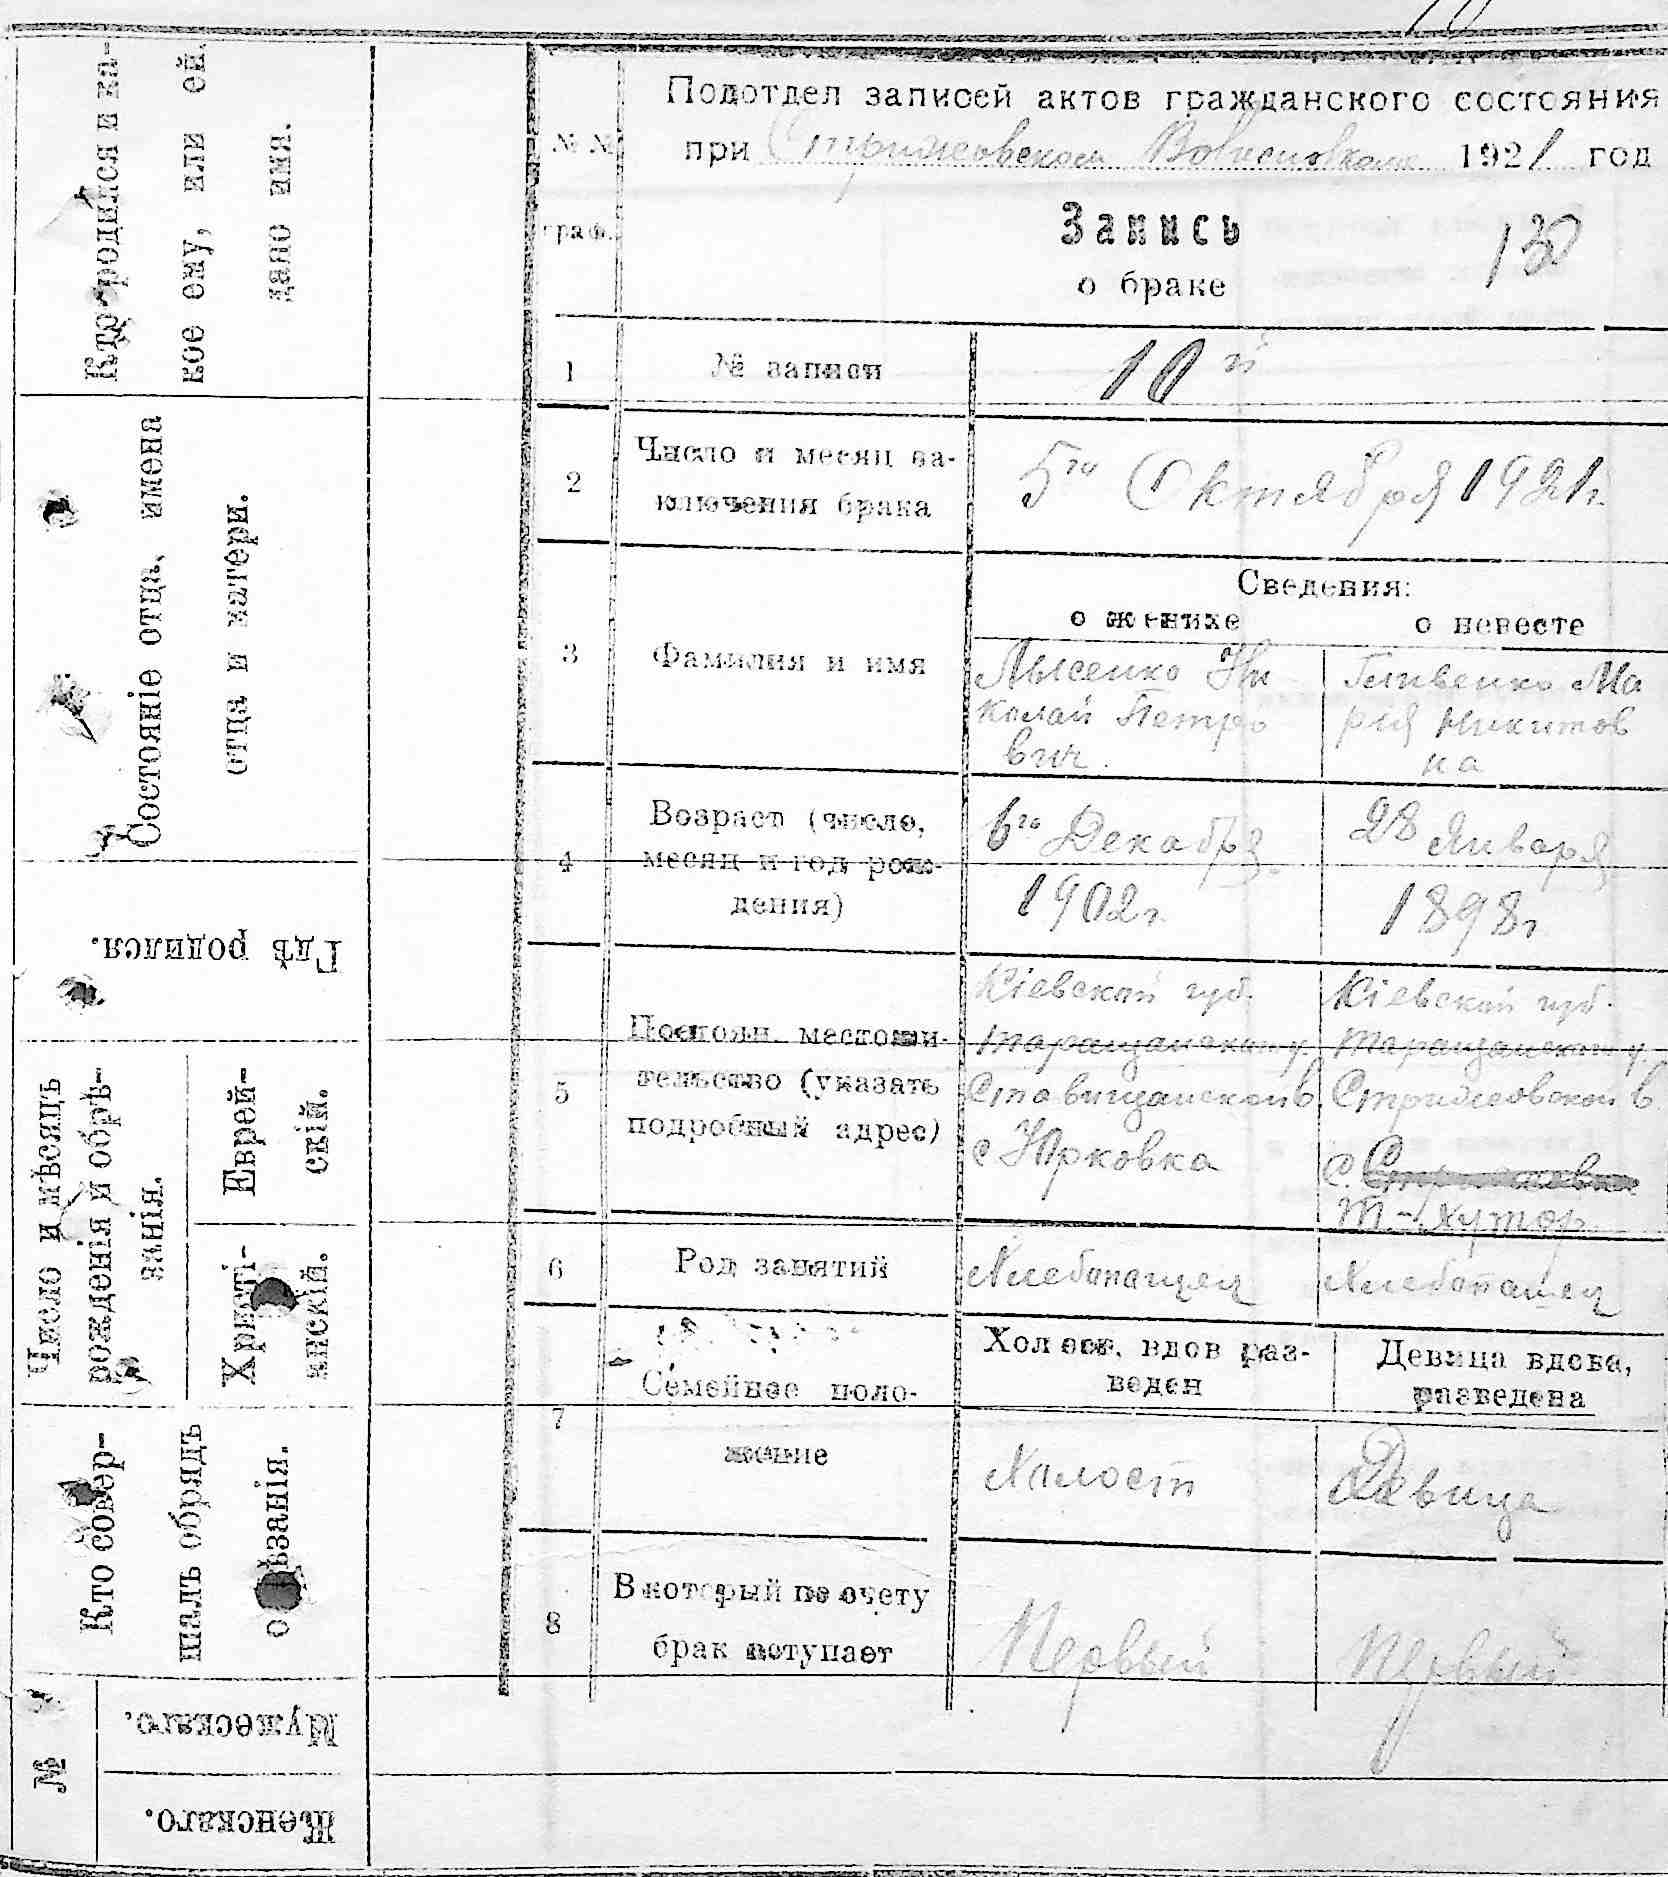 Кто родился и ка-
кое ему, или ей,
дано имя.
Состояніе отца, имена
отца и матери.
Гдѣ родился.
Число и мѣсяцъ
рожденія и обрѣ-
занія.
Еврей-
скій.
Христі-
анскій.
Кто совер-
шалъ обрядъ
обрѣзанія.
№
Мужескаго.
Женскаго.
№ №
граф.
Подотдел записей актов гражданского состояния
при Стрижовском Волисполкоме 1921 год
Запись
о браке
130
1 № записи 10й
2 Число и месяц за-
ключения брака
5го Октября 1921г.
Сведения:
о женихе о невесте
3 Фамилия и имя
Лысенко Ни
колай Петро
вич.
Ма
рия Никитов
на
4 Возраст (число,
месяц и год рож-
дения)
6го Декабря
1902г.
28 Января
1898г
5 Постоян. местожи-
тельство (указать
подробный адрес)
Кіевской губ.
Таращанского у.
Ставищанской в.
с Юрковка
Кіевской губ.
Таращанского у.
Стрижовской в
с.
Т-Хутор
6 Род занятий
Хлебопашец Хлебопашец
7 Семейное поло-
жение
Холост. вдов раз-
веден
Девица вдова,
разведена
Халост Девица
8 В который по счету
брак вступает
Первый Первый